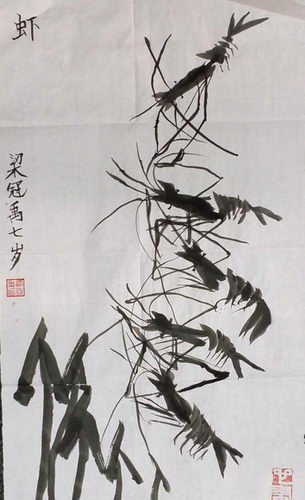 虾
梁冠禹七岁